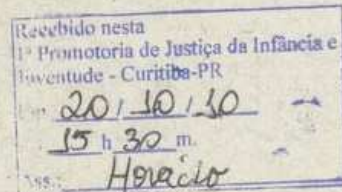 Recebido nesta
1ª Promotoria de Justiça da Infância e
Juventude - Curitiba-PR
Em 20/10/10
15 h 30 m.
Ass.: Horácio